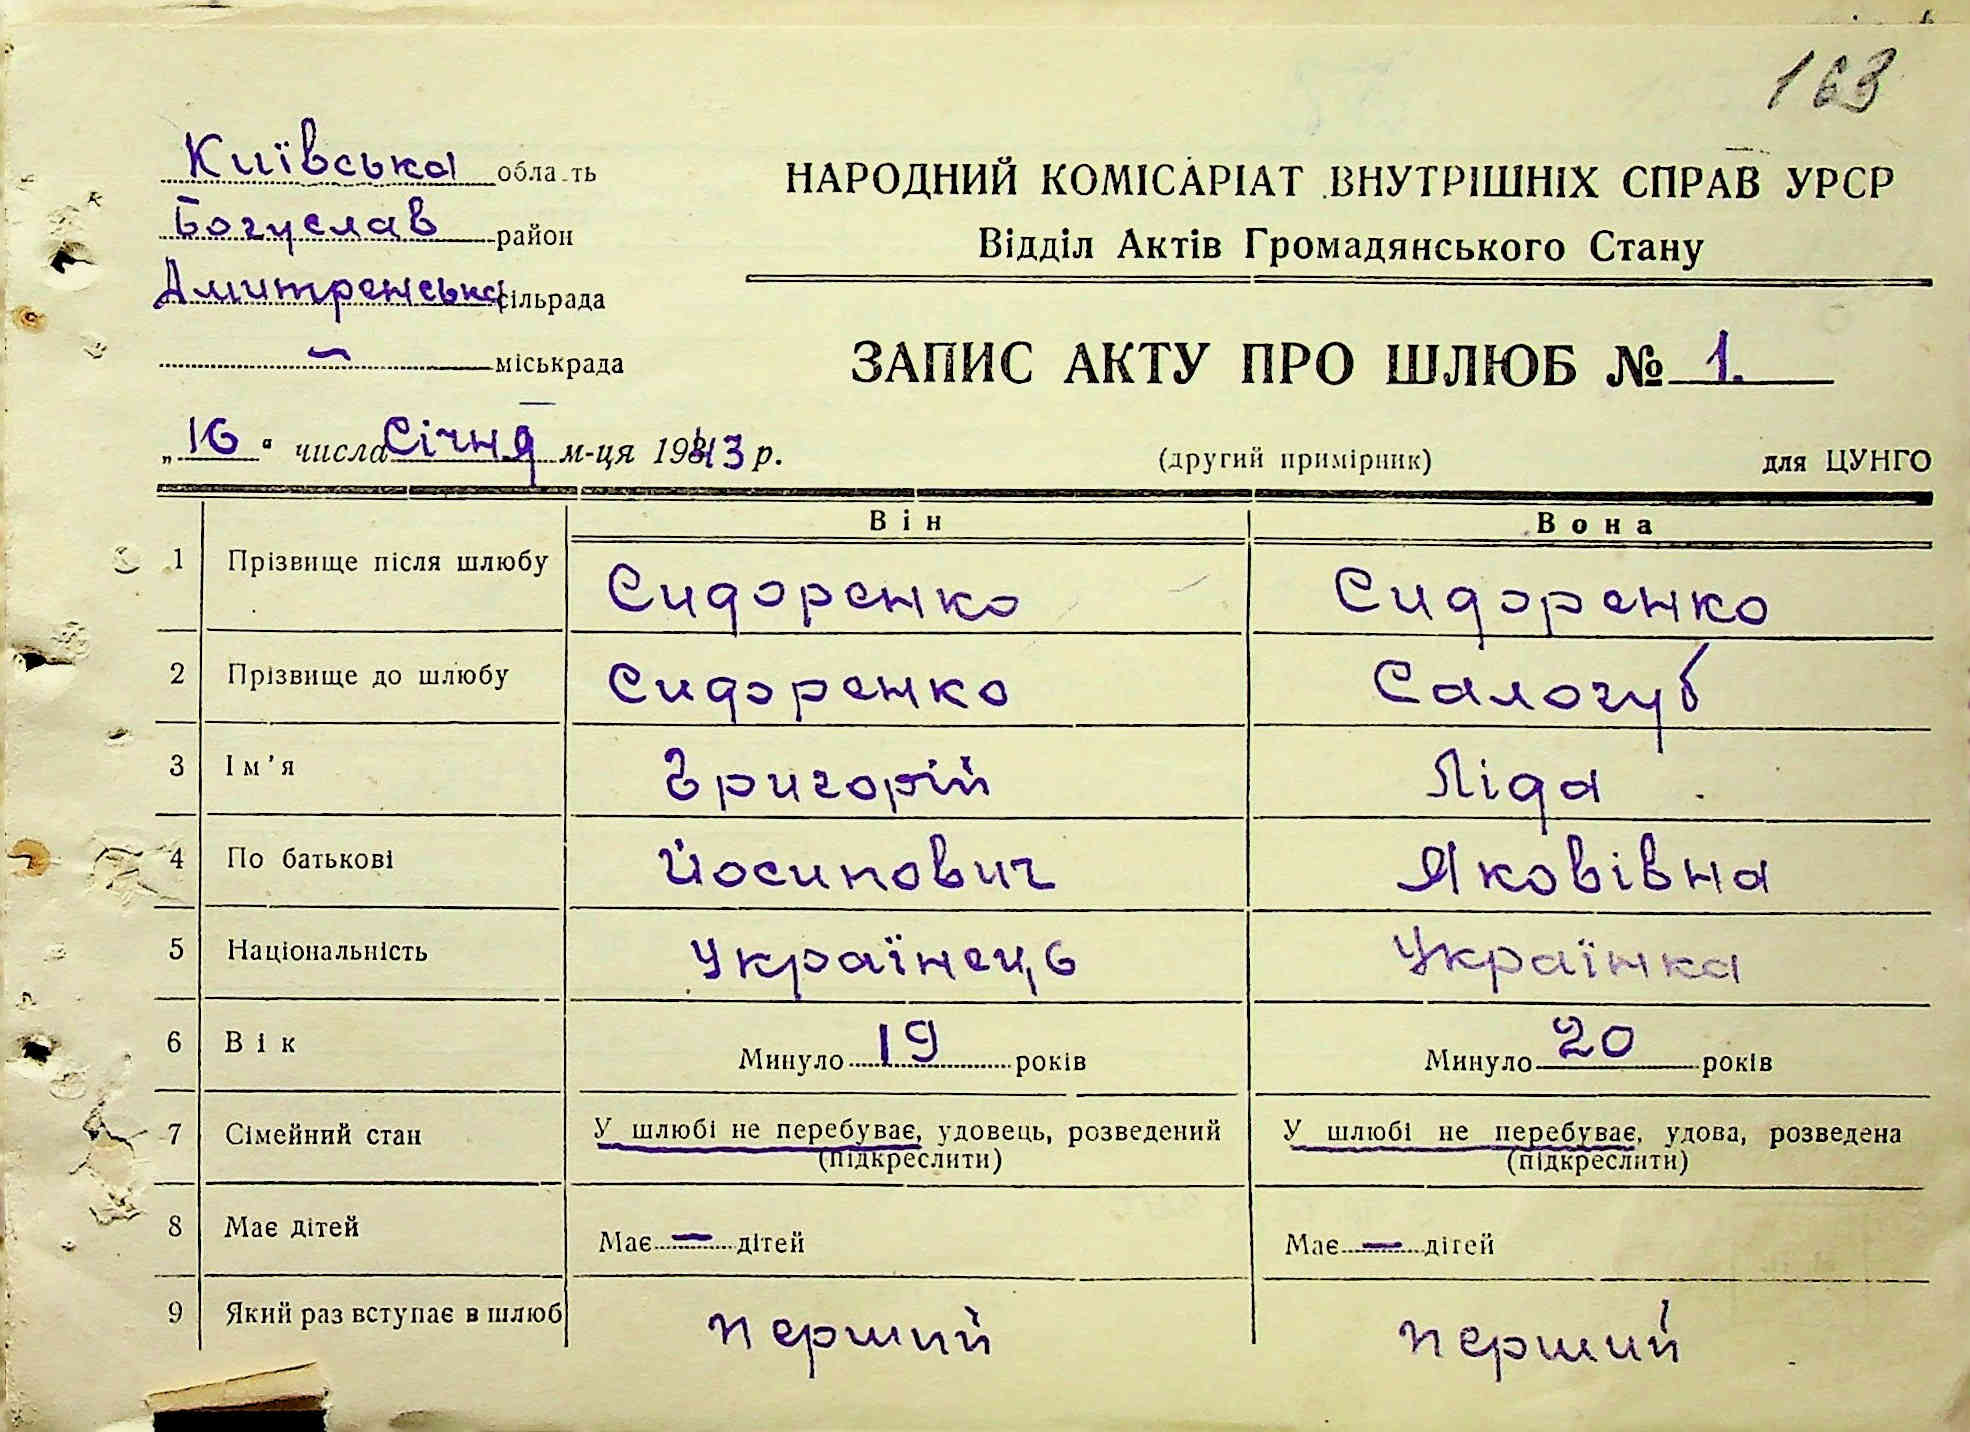 163
Київська область
Богуслав район
Дмитренська сільрада
— міськрада
НАРОДНИЙ КОМІСАРІАТ ВНУТРІШНІХ СПРАВ УРСР
Відділ Актів Громадянського Стану
ЗАПИС АКТУ ПРО ШЛЮБ № 1.
„16“ числа Січня м-ця 1943 р.
(другий примірник) для ЦУНГО
Він Вона
1 Прізвище після шлюбу Сидоренко Сидоренко
2 Прізвище до шлюбу Сидоренко Салогуб
3 Ім'я Григорій Ліда
4 По батькові Йосипович Яковівна
5 Національність Українець Українка
6 Вік Минуло 19 років Минуло 20 років
7 Сімейний стан У шлюбі не перебуває, удовець, розведений У шлюбі не перебуває, удова, розведена
(підкреслити) (підкреслити)
8 Має дітей Має — дітей Має — дітей
9 Який раз вступає в шлюб перший перший